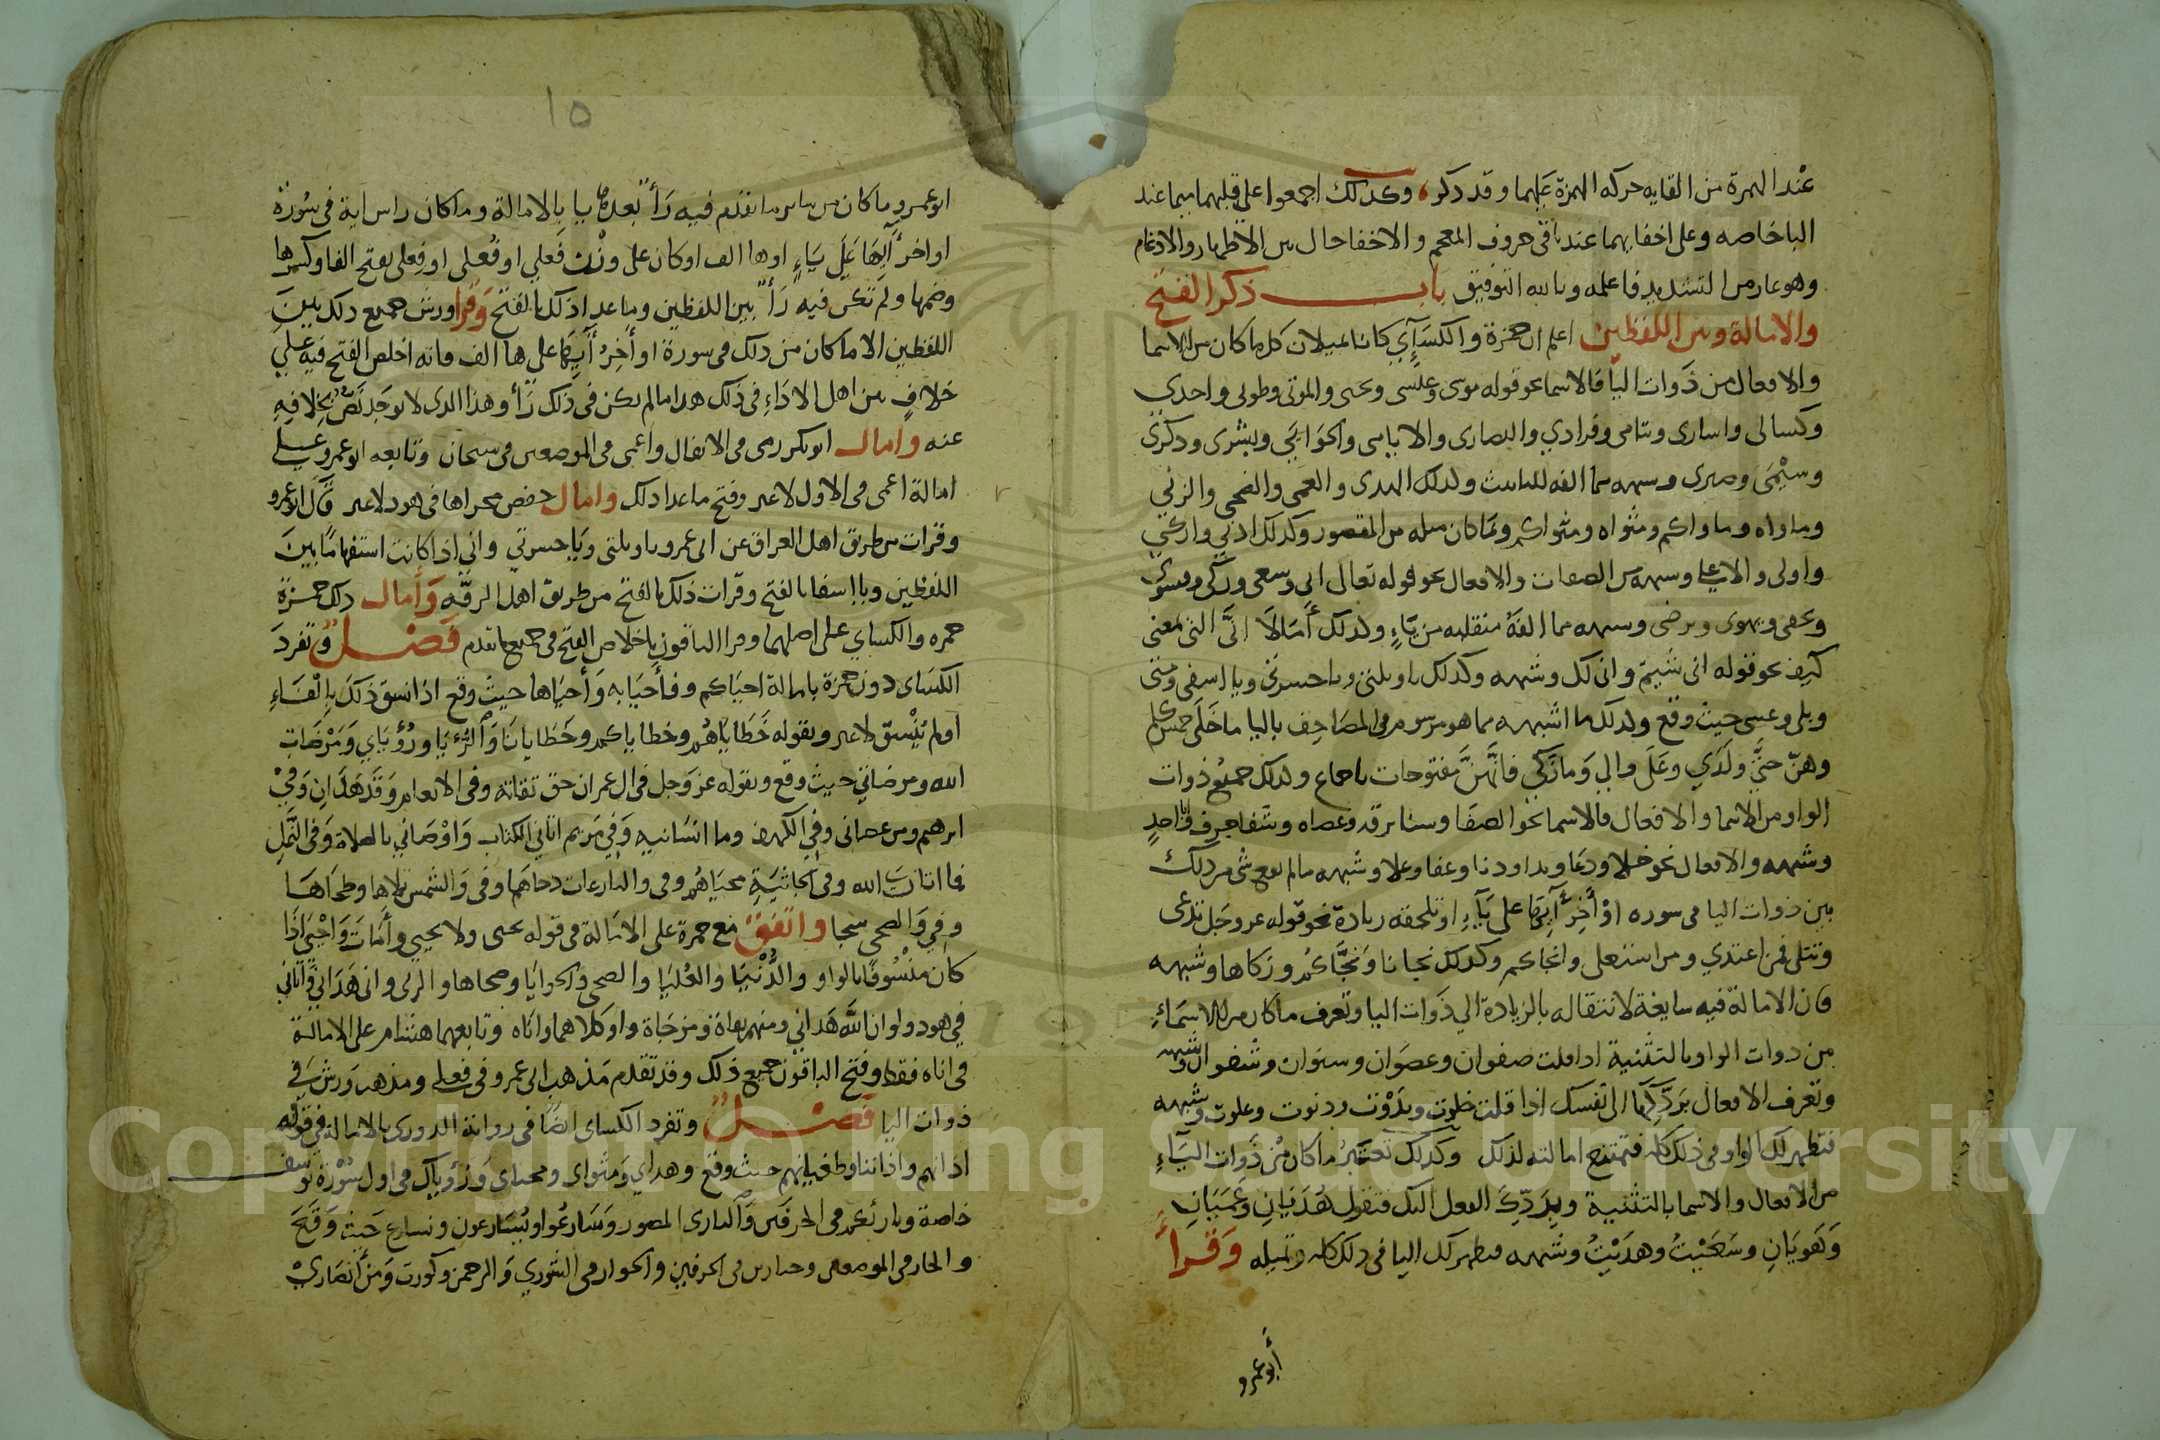 عند الهمزة من القايه حركه الهمزة عليهما وقد ذكر، وكذلك اجمعوا على قلبهما ميما عند
الباخاصه وعلى اخفايهما عند باقى حروف المعجم والاخفا حال بين الاظهار والادغام
وهو عار من التشديد فاعلمه وبالله التوفيق باب ذكر الفتح
والامالة وبين اللفظين اعلم ان حمزة والكسآئي كانا يميلان كل ما كان من الاسما
والافعال من ذوات اليا فالاسما نحو قوله موسى وعيسى ويحيى والموتى وطوبى واحدى
وكسالى واسارى ويتامى وفرادي والنصارى والايامى والحوايا وبشرى وذكرى
وسيمى وضيزى وشبهه مما الفه للتانيث وكذلك الهدى والعمى والضحى والزنى
وماواه وماواكم ومثواه ومثواكم وما كان مثله من المقصور وكذلك ادنى وازكى
واولى والاعلى وشبهه من الصفات والافعال نحو قوله تعالى ابى وسعى وزكى وفسوى
ويخفى ويهوى ويرضى وشبهه مما الفه منقلبه من ياء وكذلك أمالا انى التى بمعنى
كيف نحو قوله انى شيتم وانى لك وشبهه وكذلك ياويلتى وياحسرتى ويا اسفى ومتى
وبلى وعسى حيث وقع وكذلك ما اشبهه مما هو مرسوم فى المصاحف باليا ما خلى خمس كلم
وهن حتى ولدي وعلى والى وما زكى فانهن مفتوحات باجماع وكذلك جميع ذوات
الواو من الاسما والافعال فالاسما نحو الصفا وسنا برقه وعصاه وشفا جرف وابا احد
وشبهه والافعال نحو خلا ودعا وبدا ودنا وعفا وعلا وشبهه مالم يقع شى من ذلك
بين ذوات اليا فى سوره اوْ أخر آيها على ياء او تلحقه زيادة نحو قوله عز وجل تدعى
وتتلى فمن اعتدي ومن استعلى وانجاكم وكذلك نجانا ونجاكم وزكاها وشبهه
فان الامالة فيه سايغة لانتقاله بالزيادة الى ذوات اليا وتعرف ما كان من الاسماء
من ذوات الواو بالتثنية اذا قلت صفوان وعصوان وسنوان وشفوان وشبهه
وتعرف الافعال بردكها الى نفسك اذا قلت خلوت وبدوت ودنوت وعلوت وشبهه
فتظهر لك الواو فى ذلك كله فتمتنع امالته لذلك وكذلك تعتبر ما كان من ذوات الياء
من الافعال والاسما بالتثنية وبردك الفعل اليك فتقول هديان وعميان
وهويان وسعيت وهديت وشبهه فتظهر لك اليا فى ذلك كله وتميله وقرأ
أبو عمرو
١٥
ابو عمرو ما كان من ساير ما تقدم فيه رأ بعدها يا بالامالة وما كان راس اية فى سورة
اواخر آيها على ياء او ها الف او كان على وزن فعلي او فعلى او فعلى بفتح الفا وكسرها
وضمها ولم تكن فيه رأ بين اللفظين وما عدا ذلك بالفتح وقرا ورش جميع ذلك بين
اللفظين الا ما كان من ذلك فى سورة اواخر آيها على ها الف فانه اخلص الفتح فيه على
خلاف من اهل الاداء فى ذلك هذا مالم يكن فى ذلك رأ وهذا الذى لا يوجد نص بخلافه
عنه وامال ابو بكر رمى فى الانفال واعمى فى الموضعين فى سبحان وتابعه ابو عمرو على
امالة اعمى فى الاول لاغير وفتح ما عدا ذلك وامال حفص مجراها فى هود لاغير قال ابو عمرو
وقرات من طريق اهل العراق عن ابى عمرو ياويلتى وياحسرتى وانى اذا كانت استفهاما بين
اللفظين ويا اسفا بالفتح وقرات ذلك بالفتح من طريق اهل الرقه وأمال ذلك حمزة
حمزه والكساي على اصلهما وقرا الباقون باخلاص الفتح فى جميع ما تقدم فصل وتفرد
الكساى دون حمزة بامالة احياكم وفأحيا به وأحياها حيث وقع اذا نسق ذلك بالفاء
او لم ينسق لاغير وبقوله خطاياهم وخطاياكم وخطايانا والرءيا ورؤياي ومرضات
الله ومرضاتي حيث وقع وبقوله عز وجل فى ال عمران حق تقاته وفى الانعام وقد هدان وفى
ابرهيم ومن عصانى وفى الكهف وما انسانيه وفي مريم اتاني الكتاب واوصاني بالصلاة وفى النمل
فما اتان الله وفى الجاثية محياهم وفى والنازعات دحاها وفى والشمس تلاها وطحاها
وفى والضحى سجا واتفق مع حمزة على الامالة فى قوله يحيى ولا يحيى وأمات واحيى اذا
كان منسوقا بالواو والدنيا والعليا والضحى والحوايا وضحاها والربى وانى هدانى وآتانى
في هود ولو ان الله هداني ومنهم تقاة ومزجاة واو كلاهما واناه وتابعهما هشام على الامالة
فى اناه فقط وفتح الباقون جميع ذلك وقد تقدم مذهب ابى عمرو فى فعلى ومذهب ورش في
ذوات اليا فصل وتفرد الكساى ايضا فى رواية الدورى بالامالة في قوله
اذانهم واذاننا وطغيانهم حيث وقع وهداي ومثواى ومحياى ورؤياك فى اول سورة يوسف
خاصة وبارئكم فى الحرفين والبارى المصور وسارعوا ويسارعون ونسارع حيث وقع
والجار فى الموضعين وجبارين فى الحرفين والجوار فى الشوري والرحمن وكورت ومن أنصاري